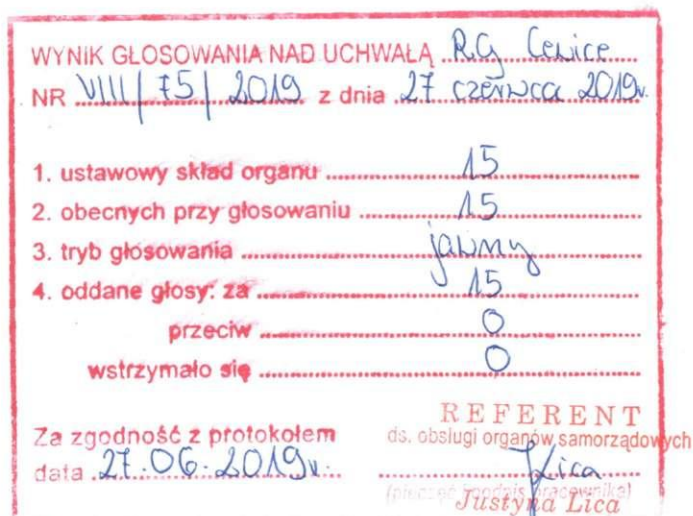 WYNIK GŁOSOWANIA NAD UCHWAŁĄ R.G Cewice
NR VIII/75/2019 z dnia 27 czerwca 2019r.
1. ustawowy skład organu 15
2. obecnych przy głosowaniu 15
3. tryb głosowania jawny
4. oddane głosy: za 15
przeciw 0
wstrzymało się 0
REFERENT
Za zgodność z protokołem ds. obsługi organów samorządowych
data 27.06.2019r. Lica
(pieczęć i podpis pracownika)
Justyna Lica